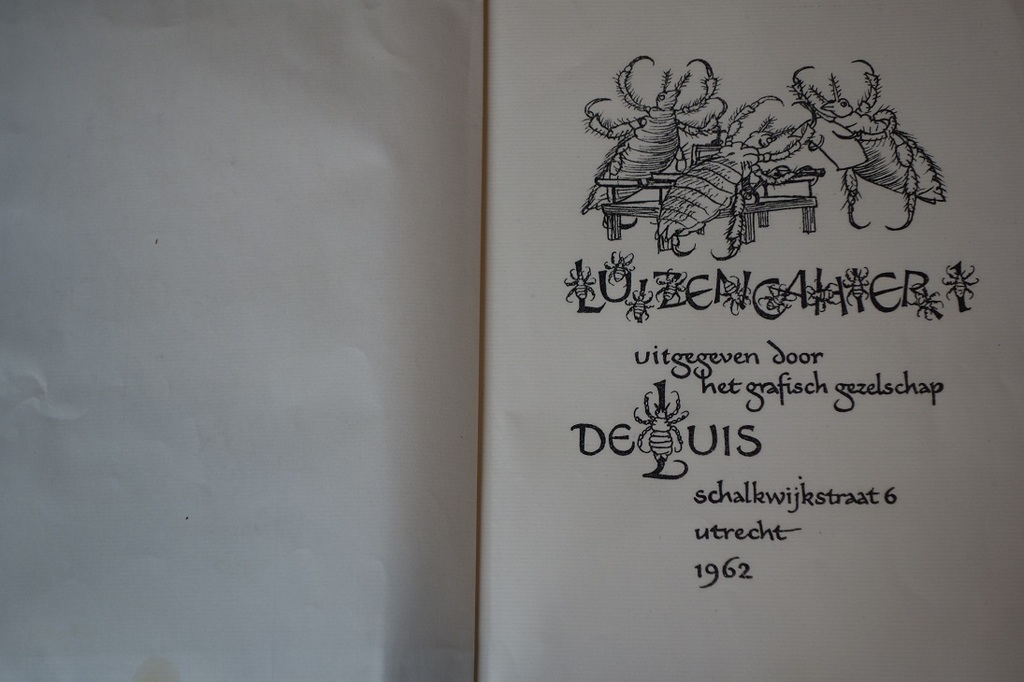 LUIZENCAHIER 1
uitgegeven door
het grafisch gezelschap
DE LUIS
schalkwijkstraat 6
utrecht
1962